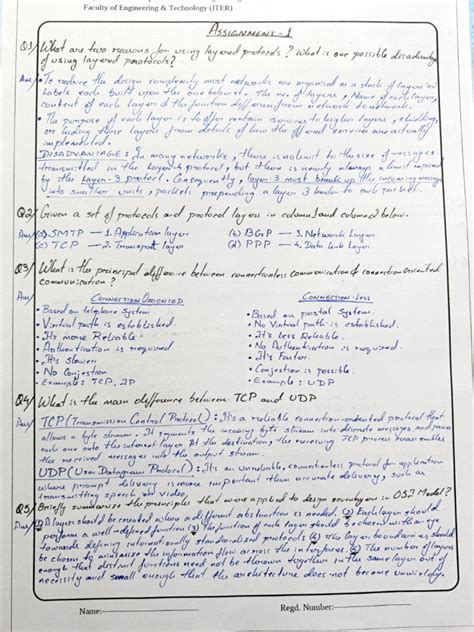 Faculty of Engineering & Technology (ITER)
ASSIGNMENT - 1
Q1/ What are two reasons for using layered protocols? What is one possible disadvantage
of using layered protocols?
Ans/ • To reduce the design complexity most networks are organised as a stack of layers or
Labels each built upon the one below it. The no. of layers, Name of each layer,
content of each layer & the function differ from network to network.
• The purpose of each layer is to offer certain services to higher layers, shielding
or hiding those layers from details of how the offered services are actually
implemented.
DISADVANTAGE: In many networks, there is no limit to the size of messages
transmitted in the Layer 4 protocol, but there is nearly always a limit imposed
by the Layer 3 protocol. Consequently, layer 3 must break up the incoming messages
into smaller units, packets, prepending a layer 3 header to each packet.
Q2/ Given a set of protocols and protocol layers in column 1 and column 2 below.
Ans/ (a) SMTP — 1. Application layer (b) BGP — 3. Network Layer
(c) TCP — 2. Transport layer (d) PPP — 4. Data link Layer
Q3/ What is the principal difference between connectionless communication & connection oriented
communication?
Ans/ CONNECTION ORIENTED CONNECTION-LESS
• Based on telephone System • Based on postal System.
• Virtual path is established. • No Virtual path is established.
• It's more Reliable. • It's less Reliable.
• Authentication is required • No Authentication is required.
• It's slower • It's Faster.
• No Congestion • Congestion is possible.
• Example: TCP, IP • Example: UDP
Q4/ What is the main difference between TCP and UDP
Ans/ TCP (Transmission Control Protocol): It's a reliable connection-oriented protocol that
allows a byte stream. It segments the incoming byte stream into discrete messages and passes
each one onto the internet layer. At the destination, the receiving TCP process reassembles
the received messages into the output stream.
UDP (User Datagram Protocol): It's an unreliable, connectionless protocol for application
where prompt delivery is more important than accurate delivery, such as
transmitting speech or video.
Q5/ Briefly summarize the principles that were applied to design seven layers in OSI Model?
Ans/ (1) A layer should be created where a different abstraction is needed. (2) Each layer should
perform a well-defined function. (3) The function of each layer should be chosen with an eye
towards defining internationally standardized protocols. (4) The layer boundaries should
be chosen to minimize the information flow across the interfaces. (5) The number of layers
enough that distinct functions need not be thrown together in the same layer out of
necessity and small enough that the architecture does not become unwieldy.
Name: Regd. Number: